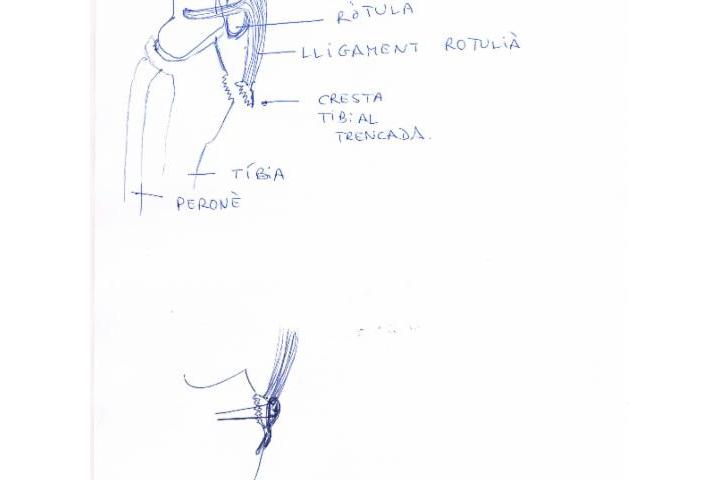 RÒTULA
LLIGAMENT ROTULIÀ
CRESTA
TIBIAL
TRENCADA.
TÍBIA
PERONÈ